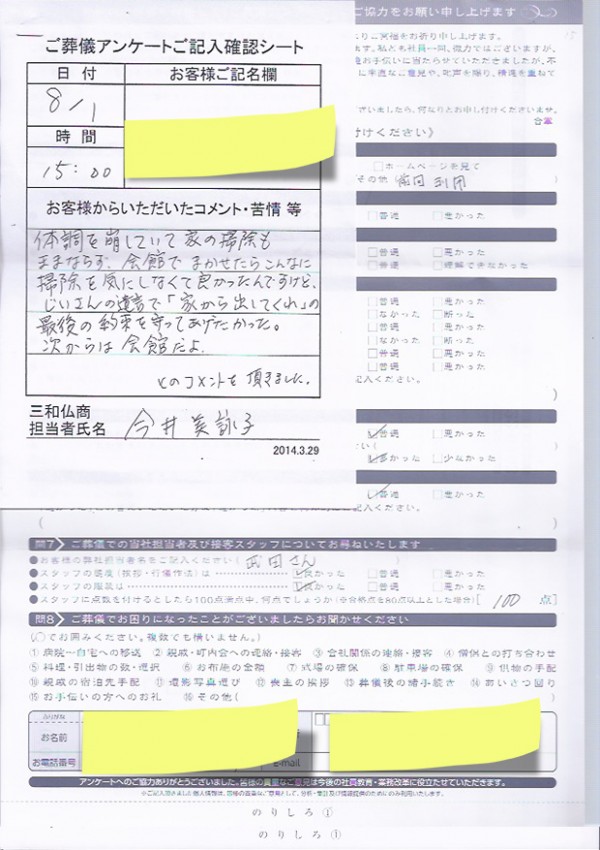 ご協力をお願い申し上げます
ご葬儀アンケートご記入確認シート
日付
お客様ご記名欄
8/1
時間
15:00
お客様からいただいたコメント・苦情 等
体調を崩していて家の掃除も
ままならず、会館でまかせたらこんなに
掃除を気にしなくて良かったんですけど、
じいさんの遺言で「家から出してくれ」の
最後の約束を守ってあげたかった。
次からは会館だよ。
とのコメントを頂きました。
三和仏商
担当者氏名 今井美詠子
2014.3.29
付けください》
□ホームページを見て
その他
□普通 □悪かった
□普通 □悪かった
□普通 □理解できなかった
□普通 □悪かった
□なかった □断った
□普通 □悪かった
□なかった □断った
□普通 □悪かった
□普通 □悪かった
記入ください。
普通 □悪かった
多かった □少なかった
普通 □悪かった
問7 ご葬儀での当社担当者及び接客スタッフについてお尋ねいたします
●お客様の弊社担当者名をご記入ください( 武田さん )
●スタッフの態度(挨拶・行儀作法)は 良かった □普通 □悪かった
●スタッフの服装は 良かった □普通 □悪かった
●スタッフに点数を付けるとしたら100点満点中、何点でしょうか(※合格点を80点以上とした場合)[ 100 点]
問8 ご葬儀でお困りになったことがございましたらお聞かせください
(○でお囲みください。複数でも構いません。)
①病院〜自宅への移送 ②親戚・町内会への連絡・接客 ③会社関係の連絡・接客 ④僧侶との打ち合わせ
⑤料理・引出物の数・選択 ⑥お布施の金額 ⑦式場の確保 ⑧駐車場の確保 ⑨供物の手配
⑩親戚の宿泊先手配 ⑪遺影写真選び ⑫喪主の挨拶 ⑬葬儀後の諸手続き ⑭あいさつ回り
⑮お手伝いの方へのお礼 ⑯その他(
ふりがな
お名前
お電話番号
e-mail
アンケートへのご協力ありがとうございました。皆様の貴重なご意見は今後の社員教育・業務改革に役立たせていただきます。
のりしろ①
のりしろ①